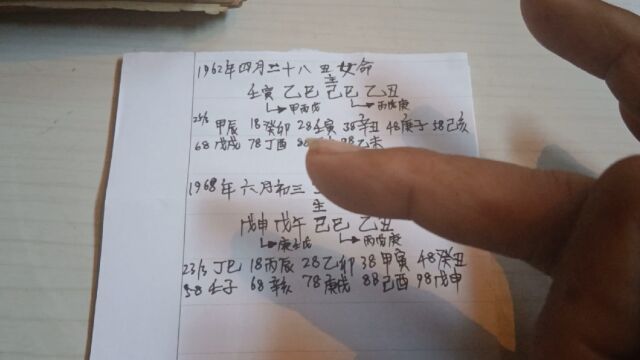 1962年四月二十八 丑 女命
主
壬寅 乙巳 己巳 乙丑
甲丙戊 丙戊庚
甲辰 18癸卯 28壬寅 38辛丑 48庚子 58己亥
68戊戌 78丁酉 乙未
1968年六月初三
主
戊申 戊午 己巳 乙丑
庚壬戊 丙戊庚
丁巳 18丙辰 28乙卯 38甲寅 48癸丑
58壬子 68辛亥 78庚戌 88己酉 98戊申